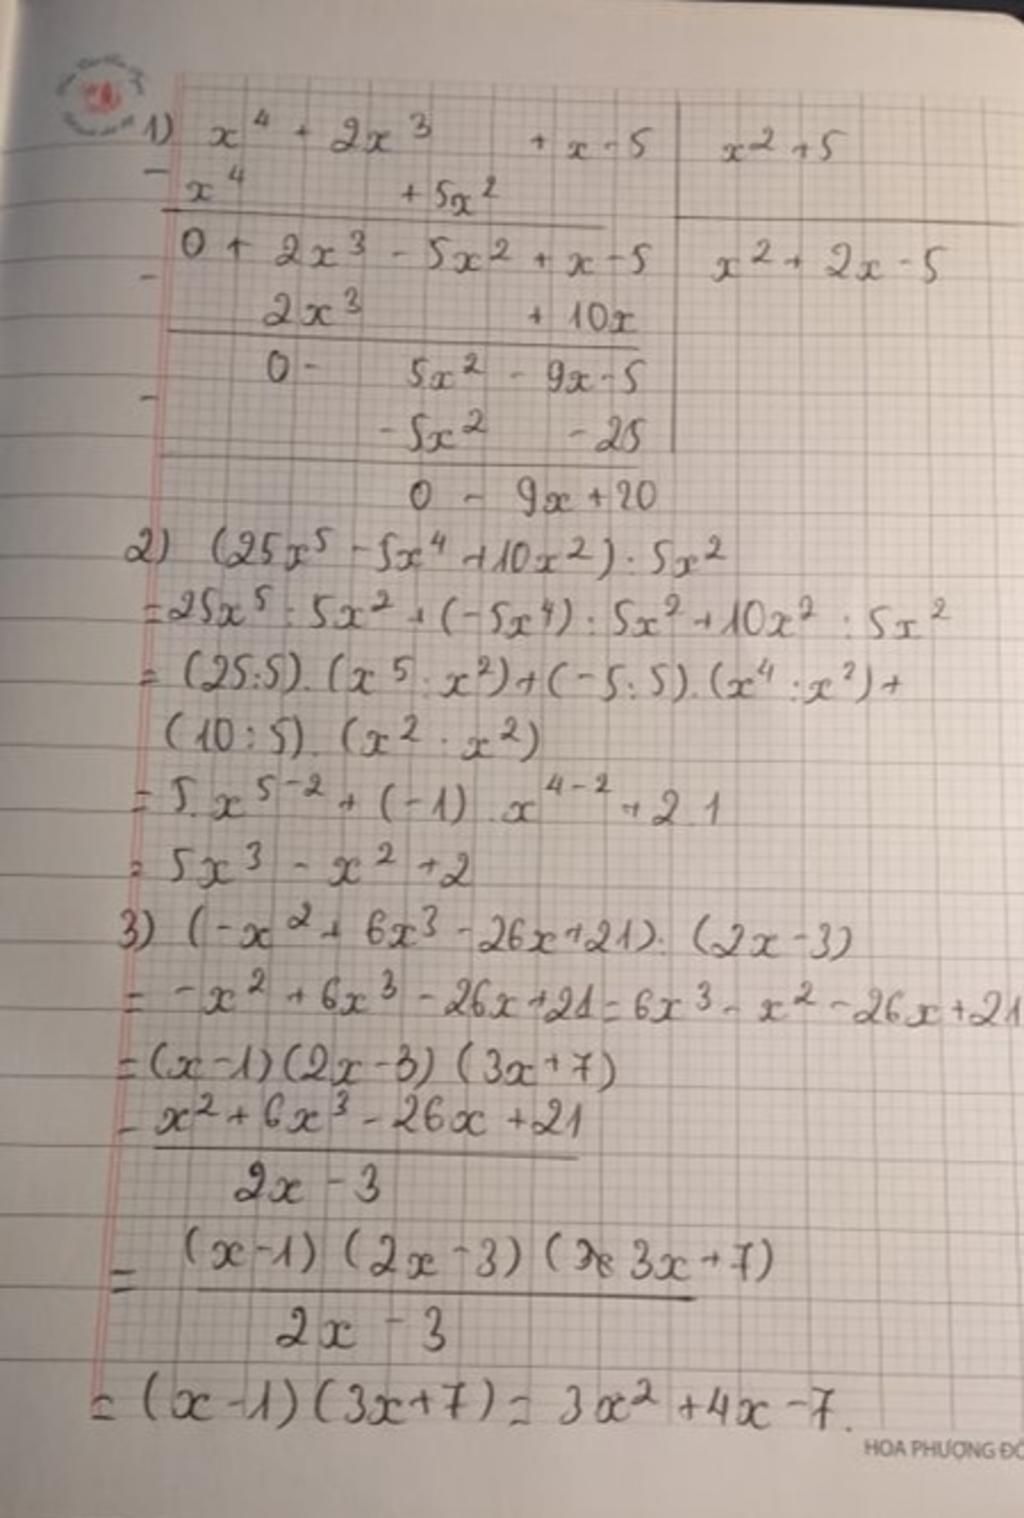 1) x⁴ + 2x³ + x - 5 | x² + 5
- x⁴ + 5x²
0 + 2x³ - 5x² + x - 5 | x² + 2x - 5
- 2x³ + 10x
0 - 5x² - 9x - 5
- - 5x² - 25
0 - 9x + 20
2) (25x⁵ - 5x⁴ + 10x²) : 5x²
= 25x⁵ : 5x² + (-5x⁴) : 5x² + 10x² : 5x²
= (25:5).(x⁵ : x²) + (-5:5).(x⁴ : x²) +
(10:5).(x² : x²)
= 5.x⁵⁻² + (-1).x⁴⁻² + 2.1
= 5x³ - x² + 2
3) (-x² + 6x³ - 26x + 21) : (2x - 3)
= -x² + 6x³ - 26x + 21 = 6x³ - x² - 26x + 21
= (x - 1)(2x - 3)(3x + 7)
- x² + 6x³ - 26x + 21
2x - 3
= (x - 1)(2x - 3)(3x + 7)
2x - 3
= (x - 1)(3x + 7) = 3x² + 4x - 7.
HOA PHƯỢNG ĐỎ